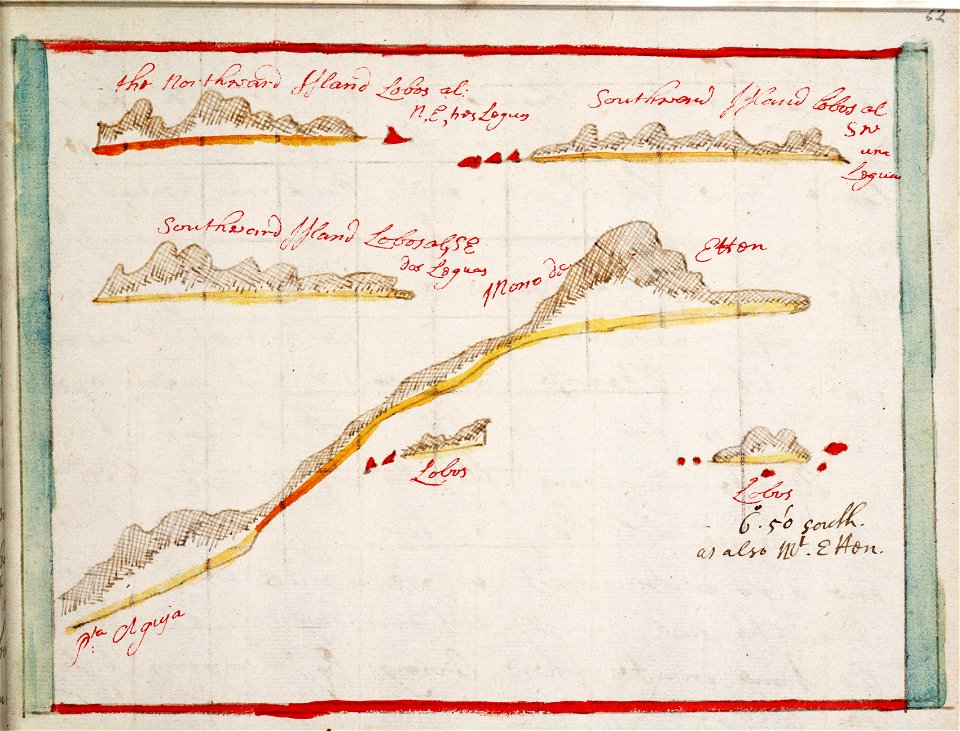 62
the Northward Island Lobos al:
N.E, tres Legus
Southward Island lobos al
SW
una
Legua
Southward Island Lobos al, SE
dos Leguas
Morro de
Etten
Lobos
Lobos
6°. 50' south.
as also Mt. Etten.
Pta Aguja